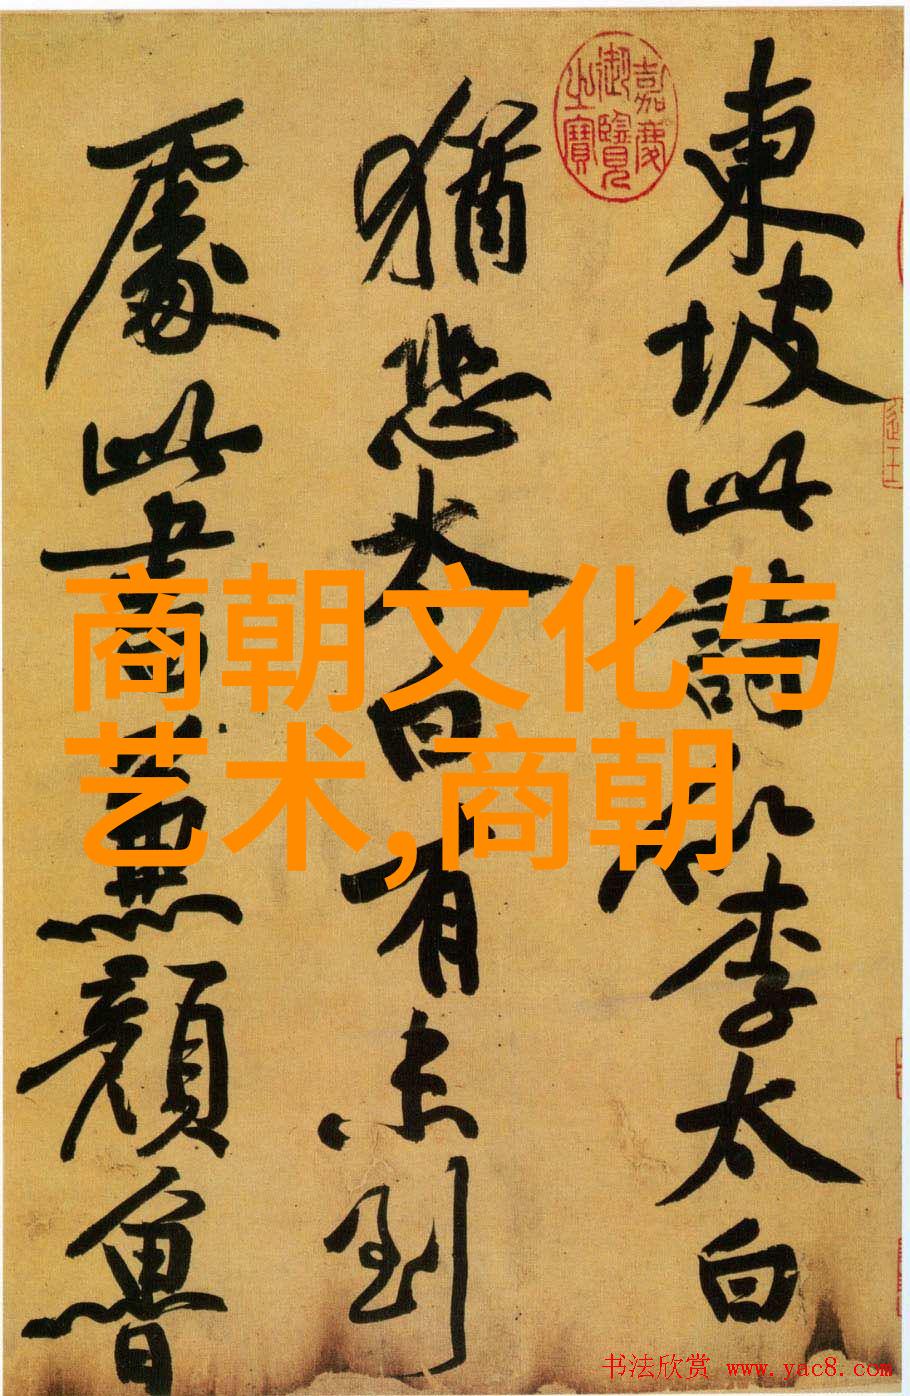 東坡此詩似李太白
猶恐太白有未到
處此書兼顏魯
嘉慶御覽之寶
商朝文化与
艺术,商朝
书法欣赏 www.yac8.com